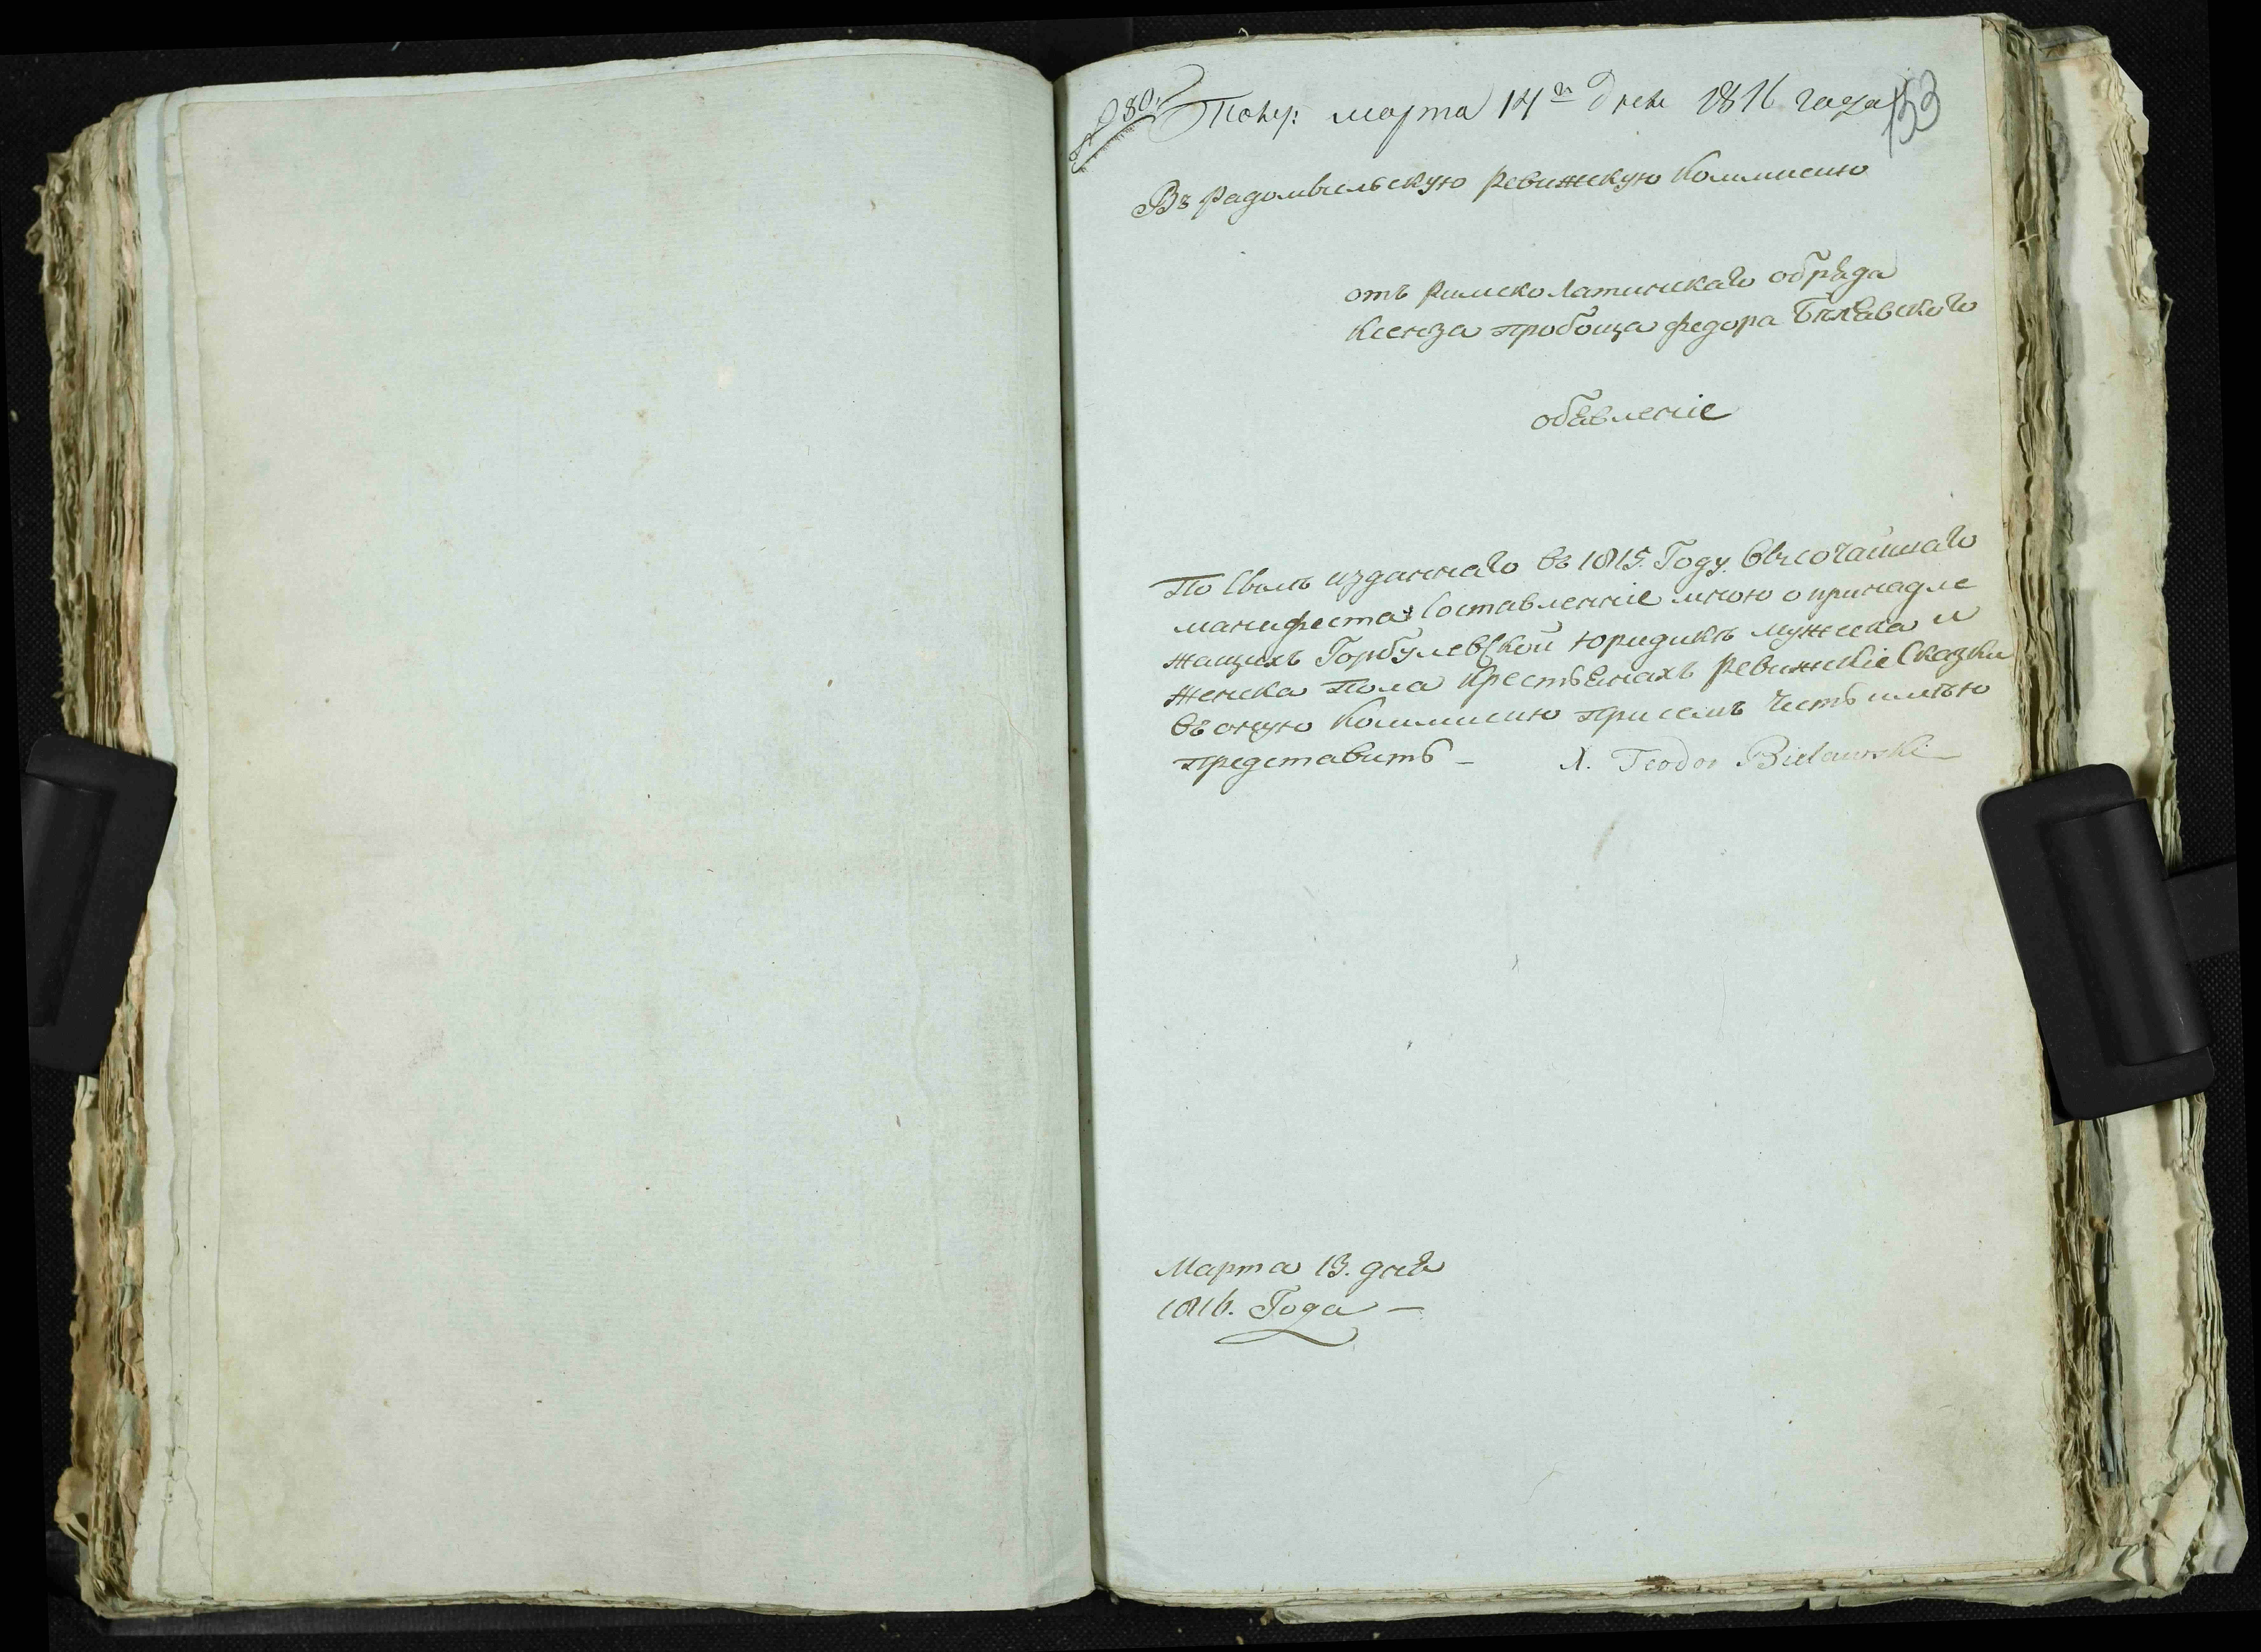 № 80. Полу: марта 14го дня 1816 года 153
Въ Радомысльскую Ревижскую Коммисию
отъ Римско Латинскаго обрѣда
Ксенза пробоща Федора Бѣлявского
обявленіе
По Силѣ изданнаго въ 1815. Году. Высочайшаго
манифеста Составленніе мною о принадле
жащихъ Горбулевской Юридикѣ мужеска и
женска Пола Крестьянахъ Ревижскіе Сказки
въ оную Коммисию при семъ Честь имѣю
представить – X. Teodor Bielawski
Марта 13. дня
1816. Года –